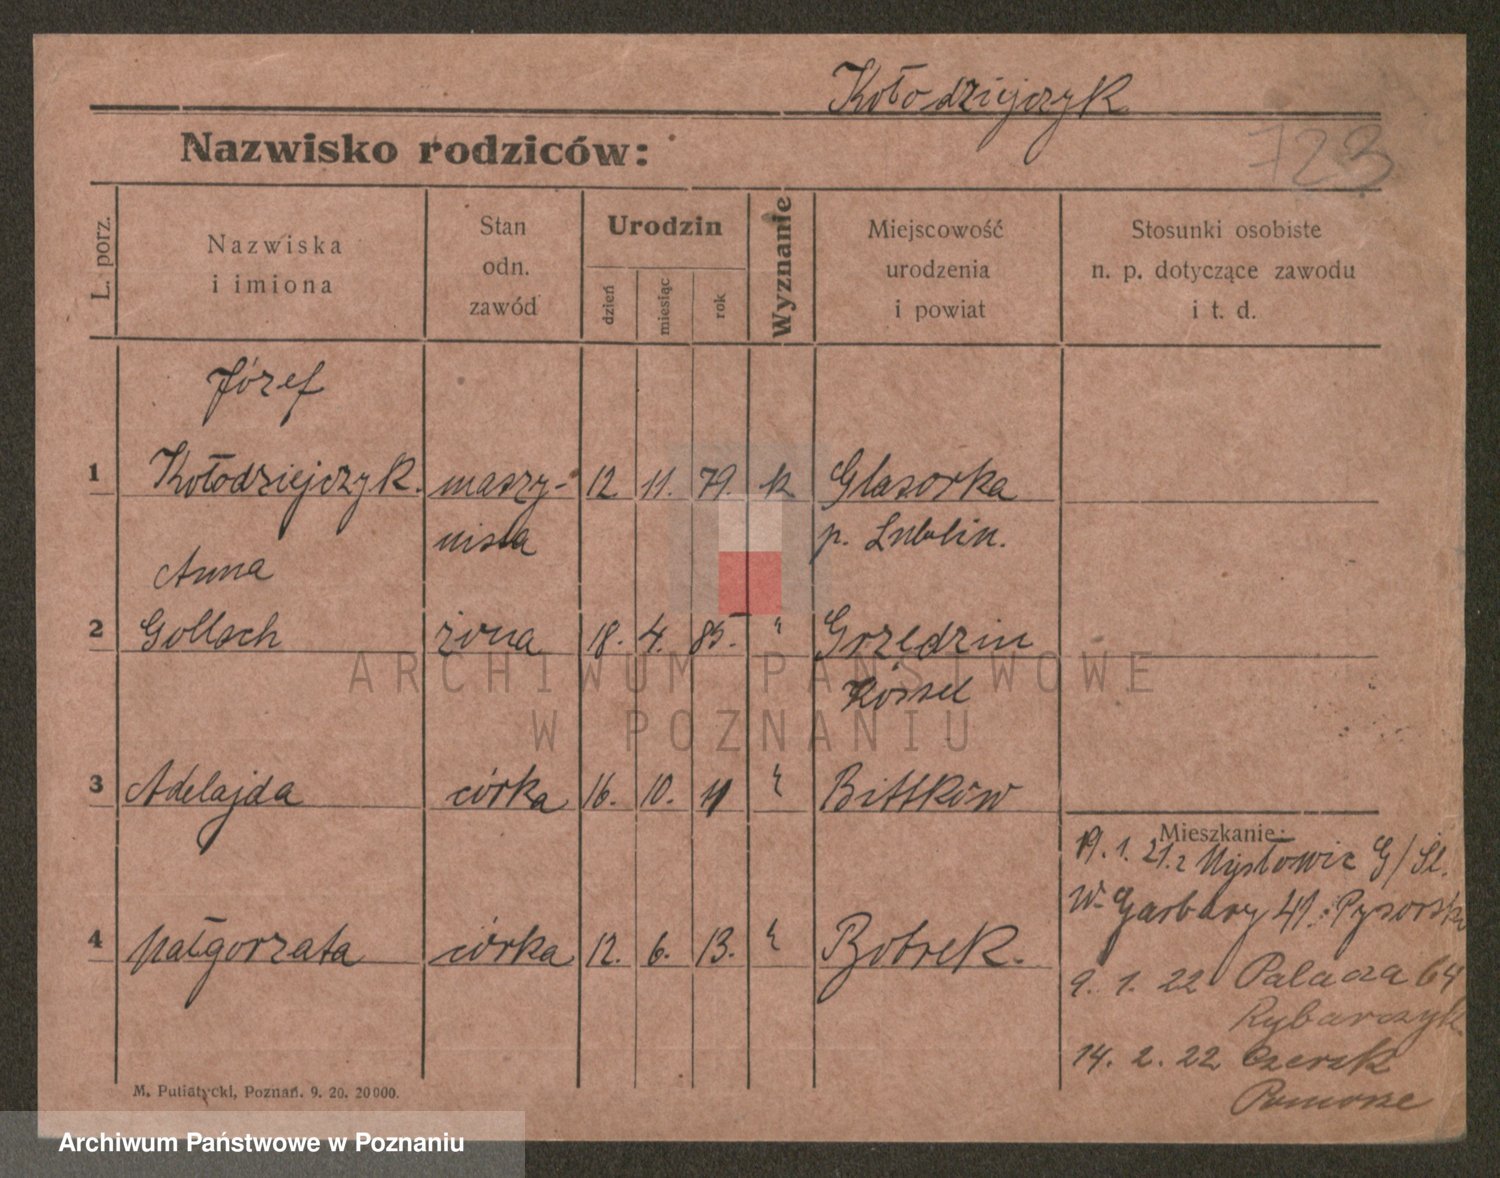 Kołodziejczyk
723
Nazwisko rodziców:
L. porz.
Nazwiska
i imiona
Stan
odn.
zawód
Urodzin
dzień
miesiąc
rok
Wyznanie
Miejscowość
urodzenia
i powiat
Stosunki osobiste
n. p. dotyczące zawodu
i t. d.
Józef
1 Kołodziejczyk. maszy- 12 11. 79. k Glasorka
nista p. Lublin.
Anna
2 Gollach żona 18. 4. 85. " Grzędzin
Kossel
3 Adelajda córka 16. 10. 11 " Bittków
Mieszkanie:
19. 1. 21. z Mysłowic G/Śl.
W. Garbary 41. Pysorsk
4 Małgorzata córka 12. 6. 13. " Bobrek.
9. 1. 22 Palacza 64
Rybarczyk
14. 2. 22 Czersk
Pomorze
M. Putiatycki, Poznań. 9. 20. 20000.
ARCHIWUM PAŃSTWOWE
W POZNANIU
Archiwum Państwowe w Poznaniu